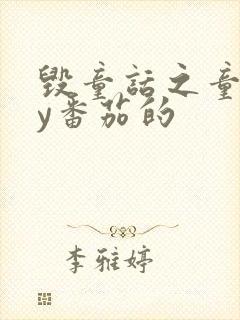 毁童话之童
y番茄的
李雅婷